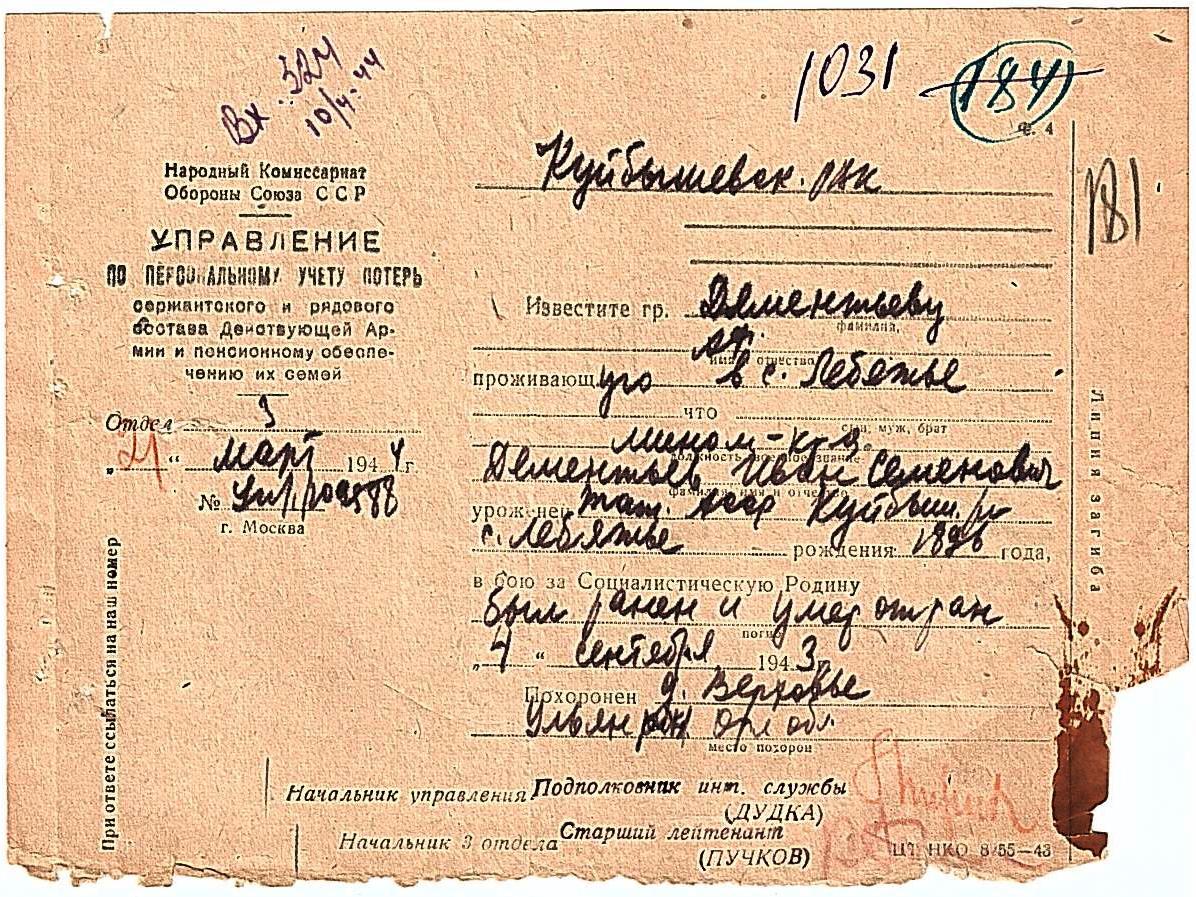 Вх. 324
10/4-44
1031
184
Ф. 4
181
Народный Комиссариат
Обороны Союза ССР
УПРАВЛЕНИЕ
ПО ПЕРСОНАЛЬНОМУ УЧЕТУ ПОТЕРЬ
сержантского и рядового
состава Действующей Ар-
мии и пенсионному обеспе-
чению их семей
Отдел 3
" " март 1944 г.
№
г. Москва
При ответе ссылаться на наш номер
Куйбышевск. РВК
Известите гр. Дементьеву
фамилия,
имя отчество
проживающ в с. Лебяжье
что
сын, муж, брат
мином- к-ра
должность военное звание
Дементьев Иван Семенович
фамилия, имя и отчество
уроженец Тат. АССР Куйбыш. р-н
с. Лебяжье рождения 1896 года,
в бою за Социалистическую Родину
был ранен и умер от ран
погиб
"4" сентября 1943 г.
Похоронен д. Верховье
Ульян р-н Орл обл.
место похорон
Начальник управления Подполковник инт. службы
(ДУДКА)
Начальник 3 отдела Старший лейтенант
(ПУЧКОВ)
ЦТ НКО 8/55—43
Линия загиба